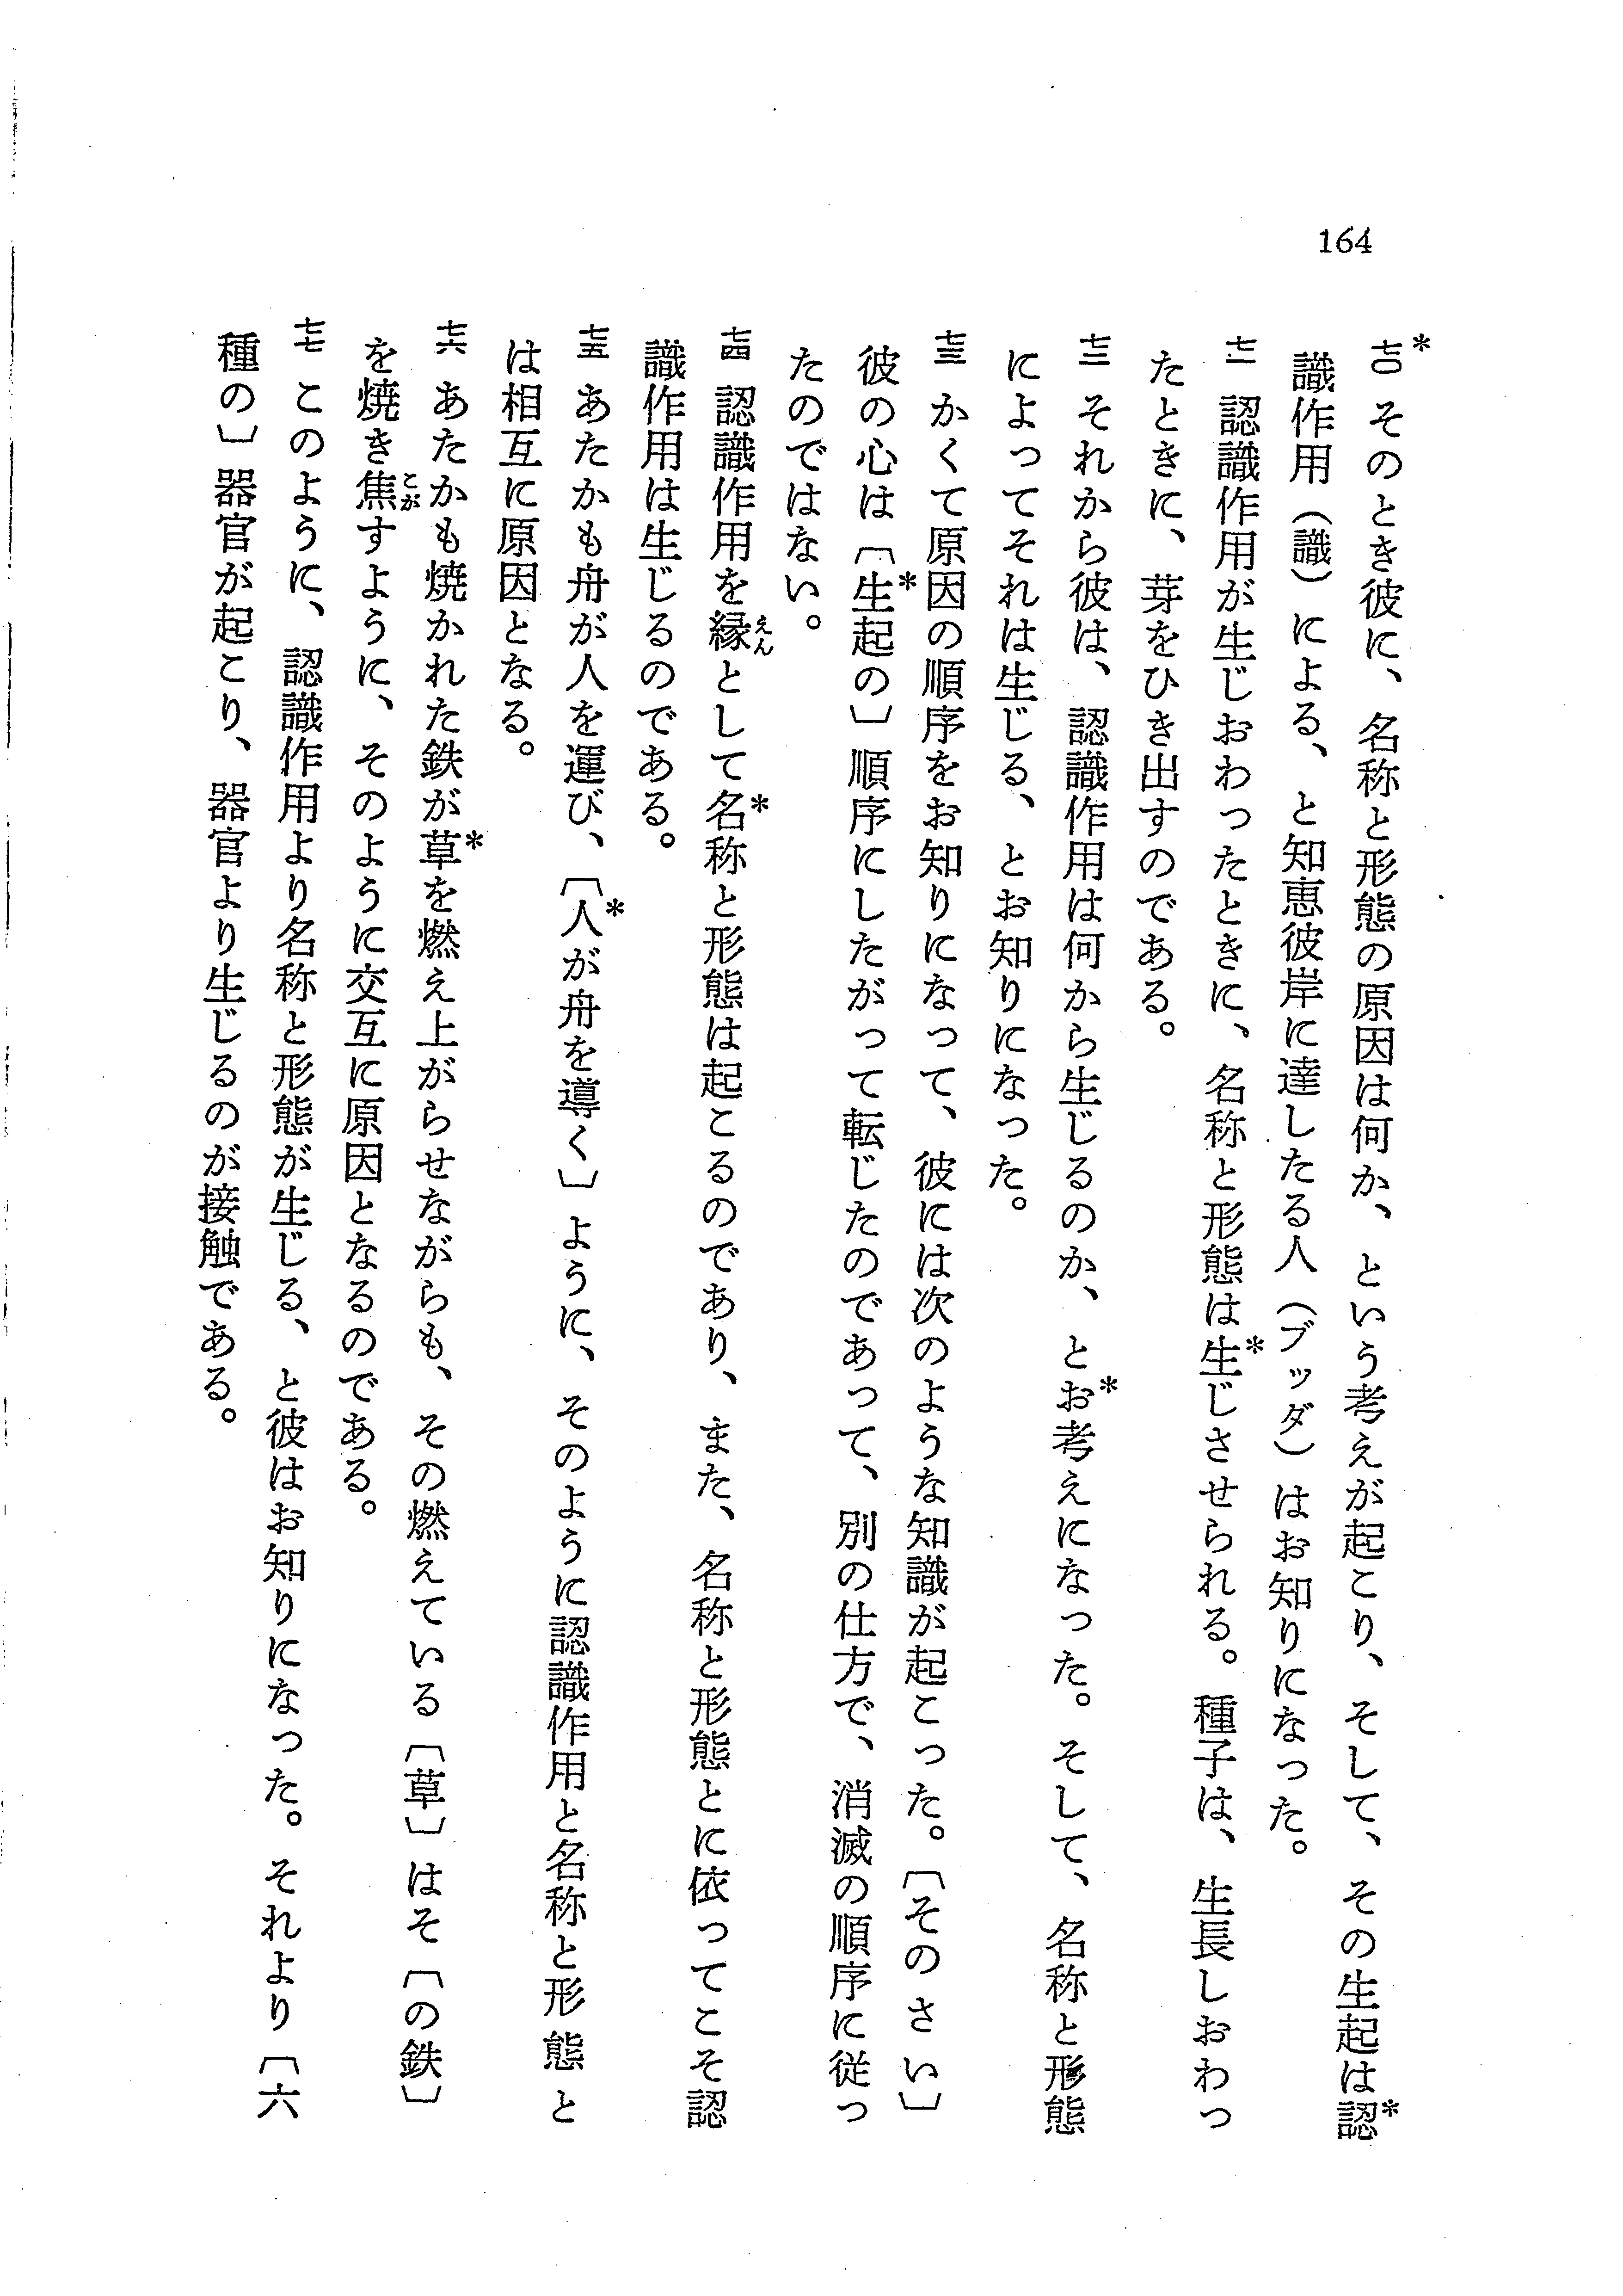 164
*七〇 そのとき彼に、名称と形態の原因は何か、という考えが起こり、そして、その生起は*認
識作用（識）による、と知恵彼岸に達したる人（ブッダ）はお知りになった。
七一 認識作用が生じおわったときに、名称と形態は*生じさせられる。種子は、生長しおわっ
たときに、芽をひき出すのである。
七二 それから彼は、認識作用は何から生じるのか、と*お考えになった。そして、名称と形態
によってそれは生じる、とお知りになった。
七三 かくて原因の順序をお知りになって、彼には次のような知識が起こった。〔そのさい〕
彼の心は〔*生起の〕順序にしたがって転じたのであって、別の仕方で、消滅の順序に従っ
たのではない。
七四 認識作用を縁えんとして*名称と形態は起こるのであり、また、名称と形態とに依ってこそ認
識作用は生じるのである。
七五 あたかも舟が人を運び、〔*人が舟を導く〕ように、そのように認識作用と名称と形態と
は相互に原因となる。
七六 あたかも焼かれた鉄が*草を燃え上がらせながらも、その燃えている〔草〕はそ〔の鉄〕
を焼き焦こがすように、そのように交互に原因となるのである。
七七 このように、認識作用より名称と形態が生じる、と彼はお知りになった。それより〔六
種の〕器官が起こり、器官より生じるのが接触である。